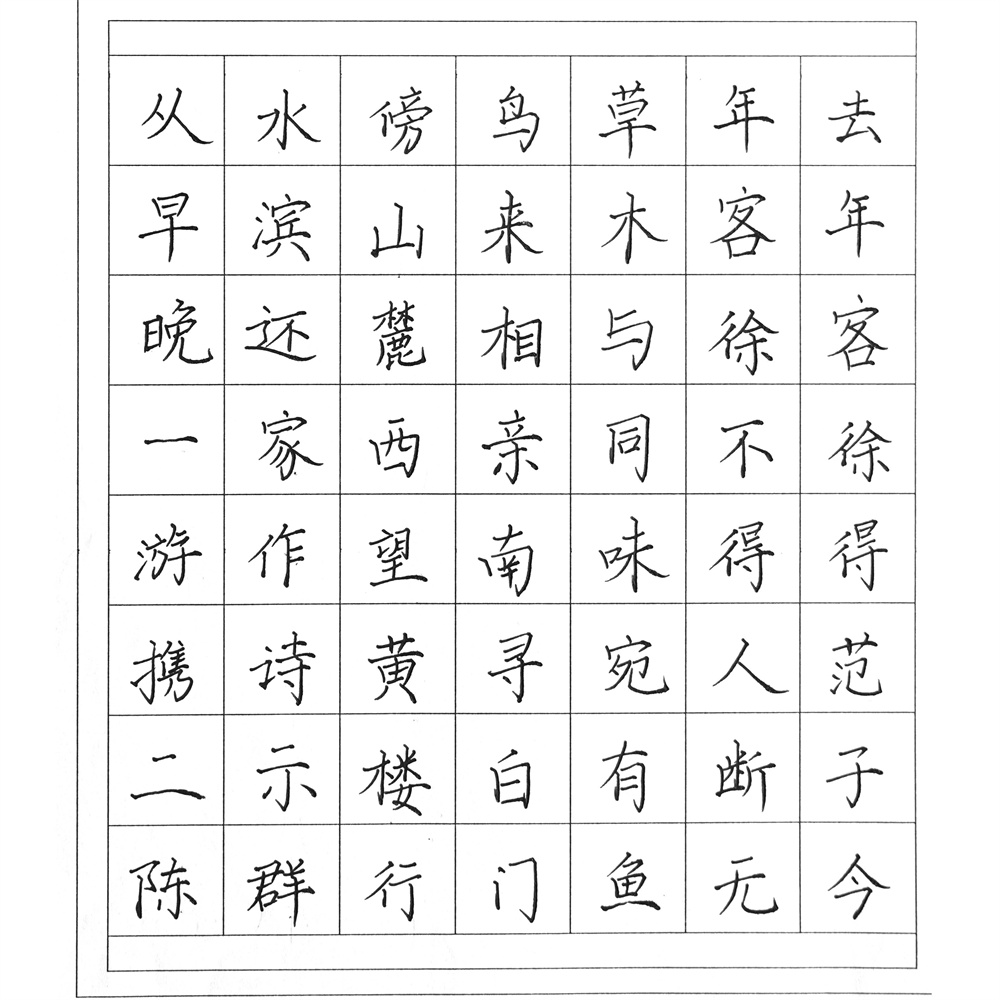 去年客徐得范子今
年客徐不得人断无
草木与同味宛有鱼
鸟来相亲南寻白门
傍山麓西望黄楼行
水滨还家作诗示群
从早晚一游携二陈